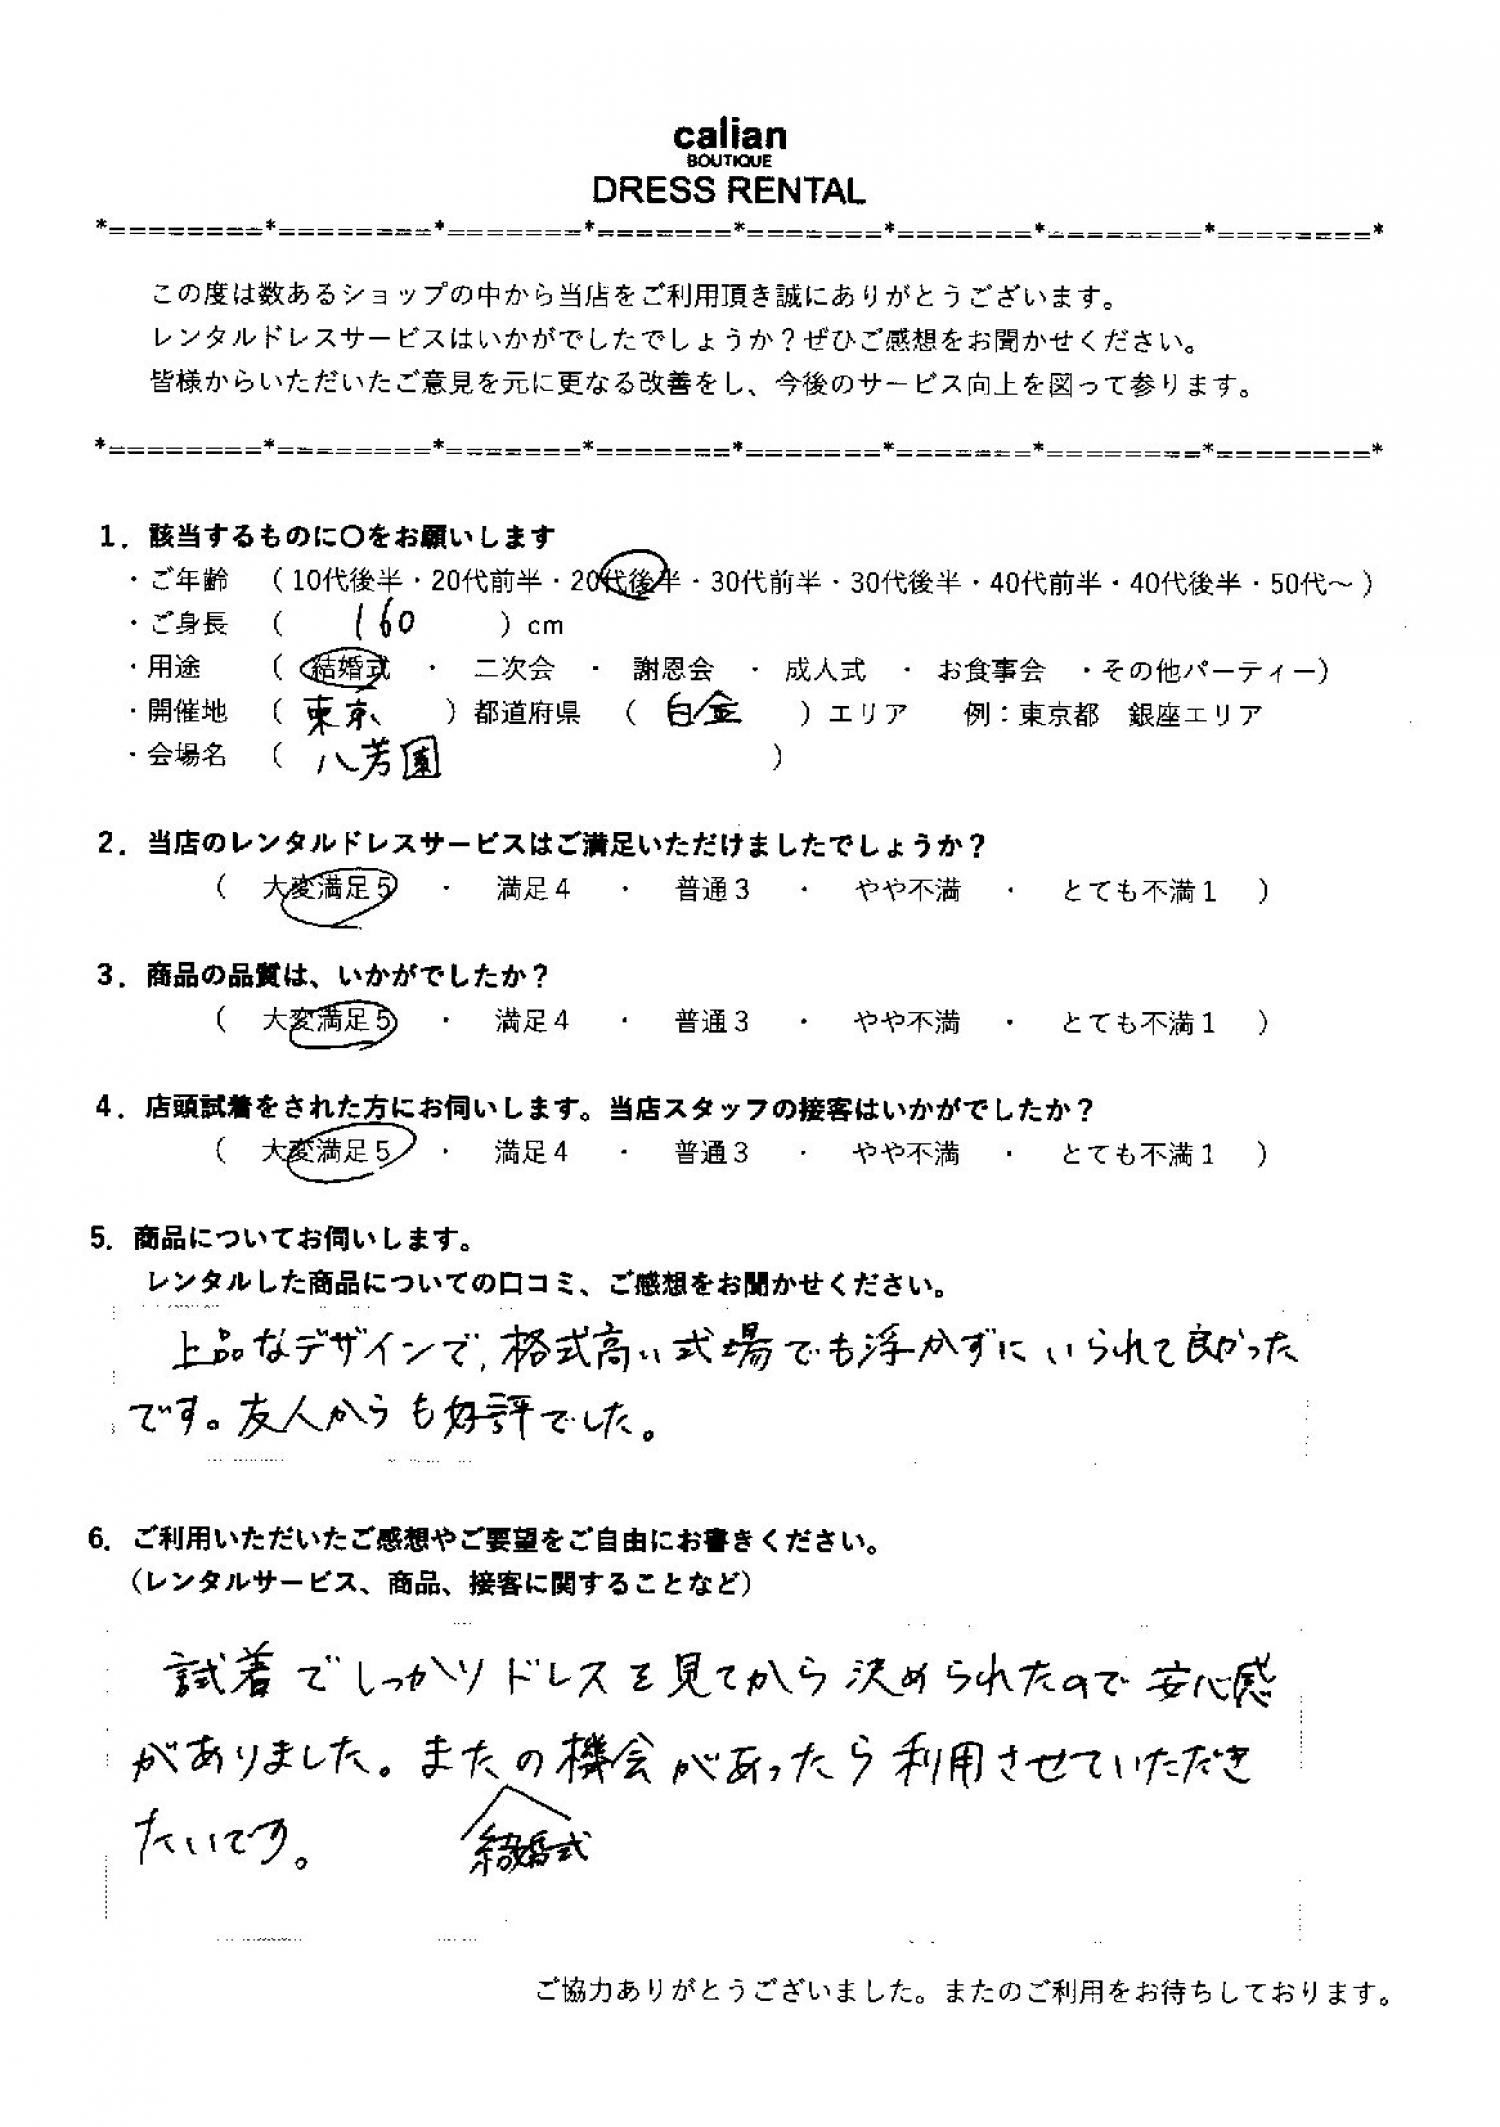 calian
BOUTIQUE
DRESS RENTAL
*========*========*=======*=======*=======*=======*========*========*
この度は数あるショップの中から当店をご利用頂き誠にありがとうございます。
レンタルドレスサービスはいかがでしたでしょうか？ぜひご感想をお聞かせください。
皆様からいただいたご意見を元に更なる改善をし、今後のサービス向上を図って参ります。
*========*========*=======*=======*=======*=======*========*========*
1．該当するものに〇をお願いします
・ご年齢 （ 10代後半・20代前半・20代後半・30代前半・30代後半・40代前半・40代後半・50代～ ）
・ご身長 （ 160 ）cm
・用途 （ 結婚式 ・ 二次会 ・ 謝恩会 ・ 成人式 ・ お食事会 ・その他パーティー）
・開催地 （ 東京 ）都道府県 （ 白金 ）エリア 例：東京都 銀座エリア
・会場名 （ 八芳園 ）
2．当店のレンタルドレスサービスはご満足いただけましたでしょうか？
（ 大変満足５ ・ 満足４ ・ 普通３ ・ やや不満 ・ とても不満１ ）
3．商品の品質は、いかがでしたか？
（ 大変満足５ ・ 満足４ ・ 普通３ ・ やや不満 ・ とても不満１ ）
4．店頭試着をされた方にお伺いします。当店スタッフの接客はいかがでしたか？
（ 大変満足５ ・ 満足４ ・ 普通３ ・ やや不満 ・ とても不満１ ）
5．商品についてお伺いします。
レンタルした商品についての口コミ、ご感想をお聞かせください。
上品なデザインで、格式高い式場でも浮かずにいられて良かった
です。友人からも好評でした。
6．ご利用いただいたご感想やご要望をご自由にお書きください。
（レンタルサービス、商品、接客に関することなど）
試着でしっかりドレスを見てから決められたので安心感
がありました。またの機会があったら利用させていただき
たいです。 結婚式
ご協力ありがとうございました。またのご利用をお待ちしております。